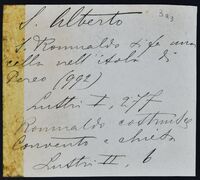 S. Alberto
S. Romualdo si fa una
cella nell'isola di
Pereo (992)
Lustri I, 277
Romualdo costruisce
Convento e chiesa
Lustri II, 6